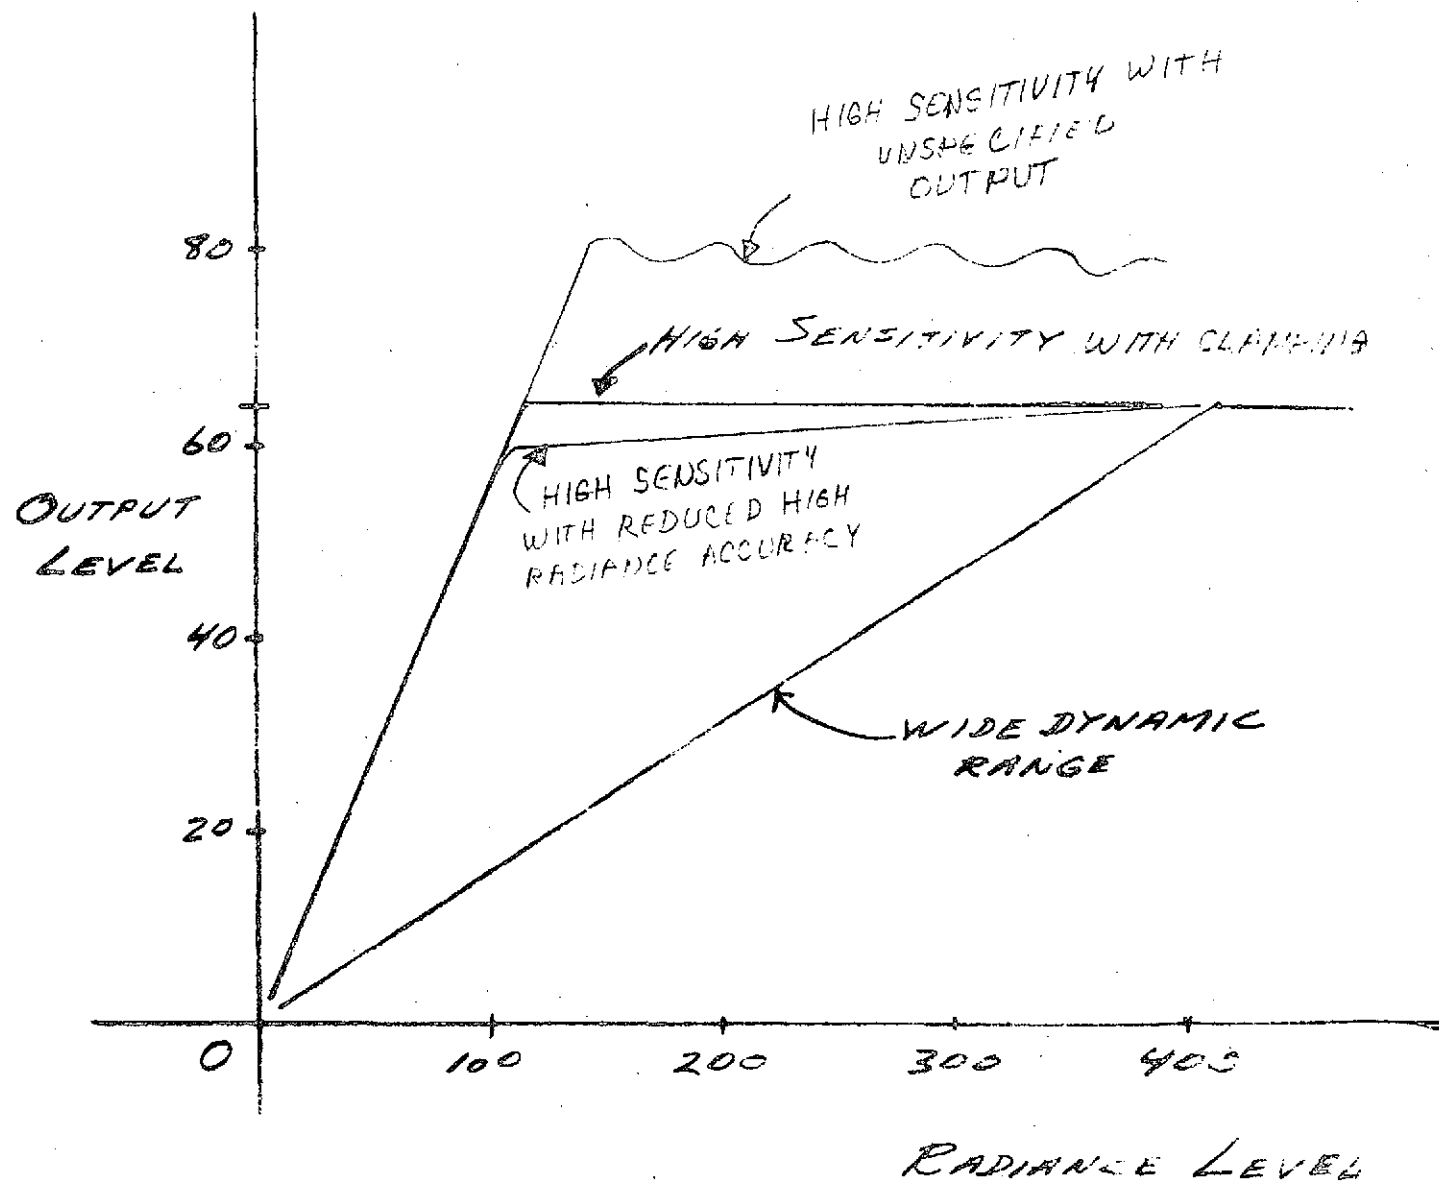 HIGH SENSITIVITY WITH
UNSPECIFIED
OUTPUT
80
HIGH SENSITIVITY WITH CLAMPING
60
OUTPUT
LEVEL
HIGH SENSITIVITY
WITH REDUCED HIGH
RADIANCE ACCURACY
40
WIDE DYNAMIC
RANGE
20
0
100
200
300
400
RADIANCE LEVEL